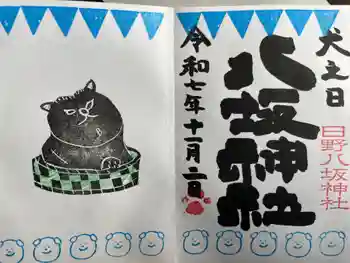 犬之日
日野八坂神社
八坂神社
令和七年十一月二日